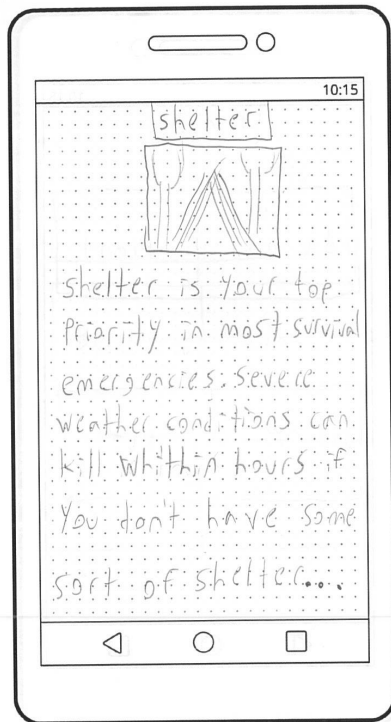 10:15
shelter
shelter is your top
Priority in most survival
emergencies. severe
weather conditions can
kill whithin hours if
You don't have some
sort of shelter...